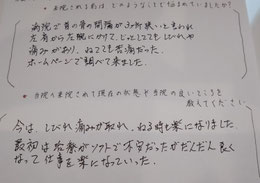 ● 当院に来院される前は、どのようなことで悩まれていましたか?
病院で首の骨の間隔が3ヶ所狭いと言われ
左肩から左腕にかけて、じっとしてもしびれや
痛みがあり、ねてても苦痛だった。
ホームページで調べて来ました。
● 当院へ来院されて現在の状態や当院の良いところを
教えてください
今は、しびれ、痛みが取れ、ねる時も楽になりました。
最初は治療がソフトで不安だったがだんだん良く
なって仕事も楽になっていった。